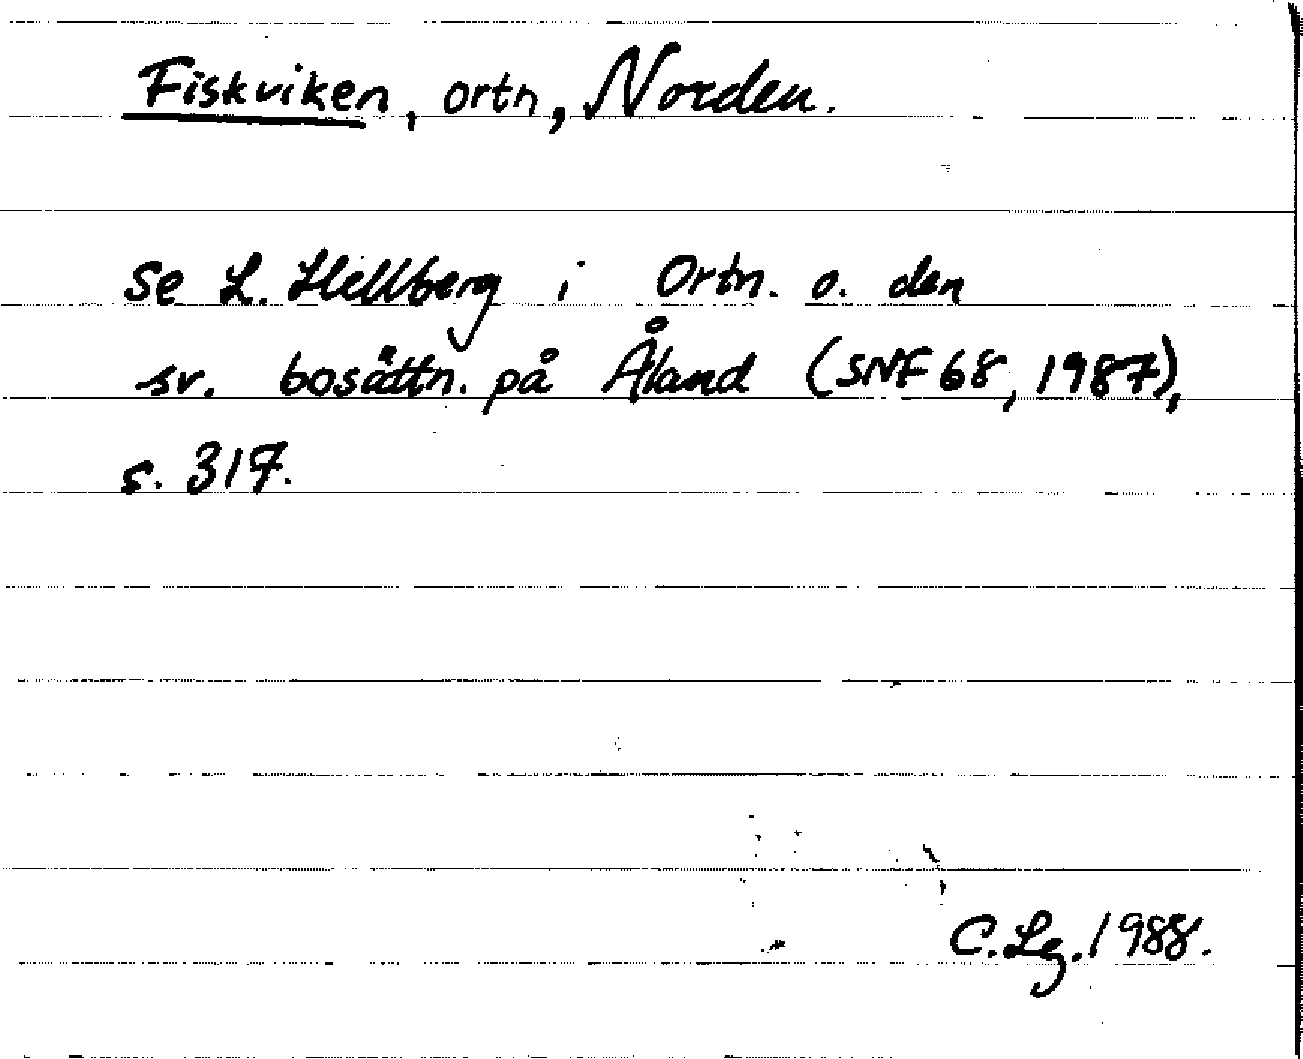 Fiskviken, ortn, Norden.
se L. Hellberg i Ortn. o. den
sv. bosättn. på Åland (SNF 68, 1987),
s. 317.
C. Lg. 1988.